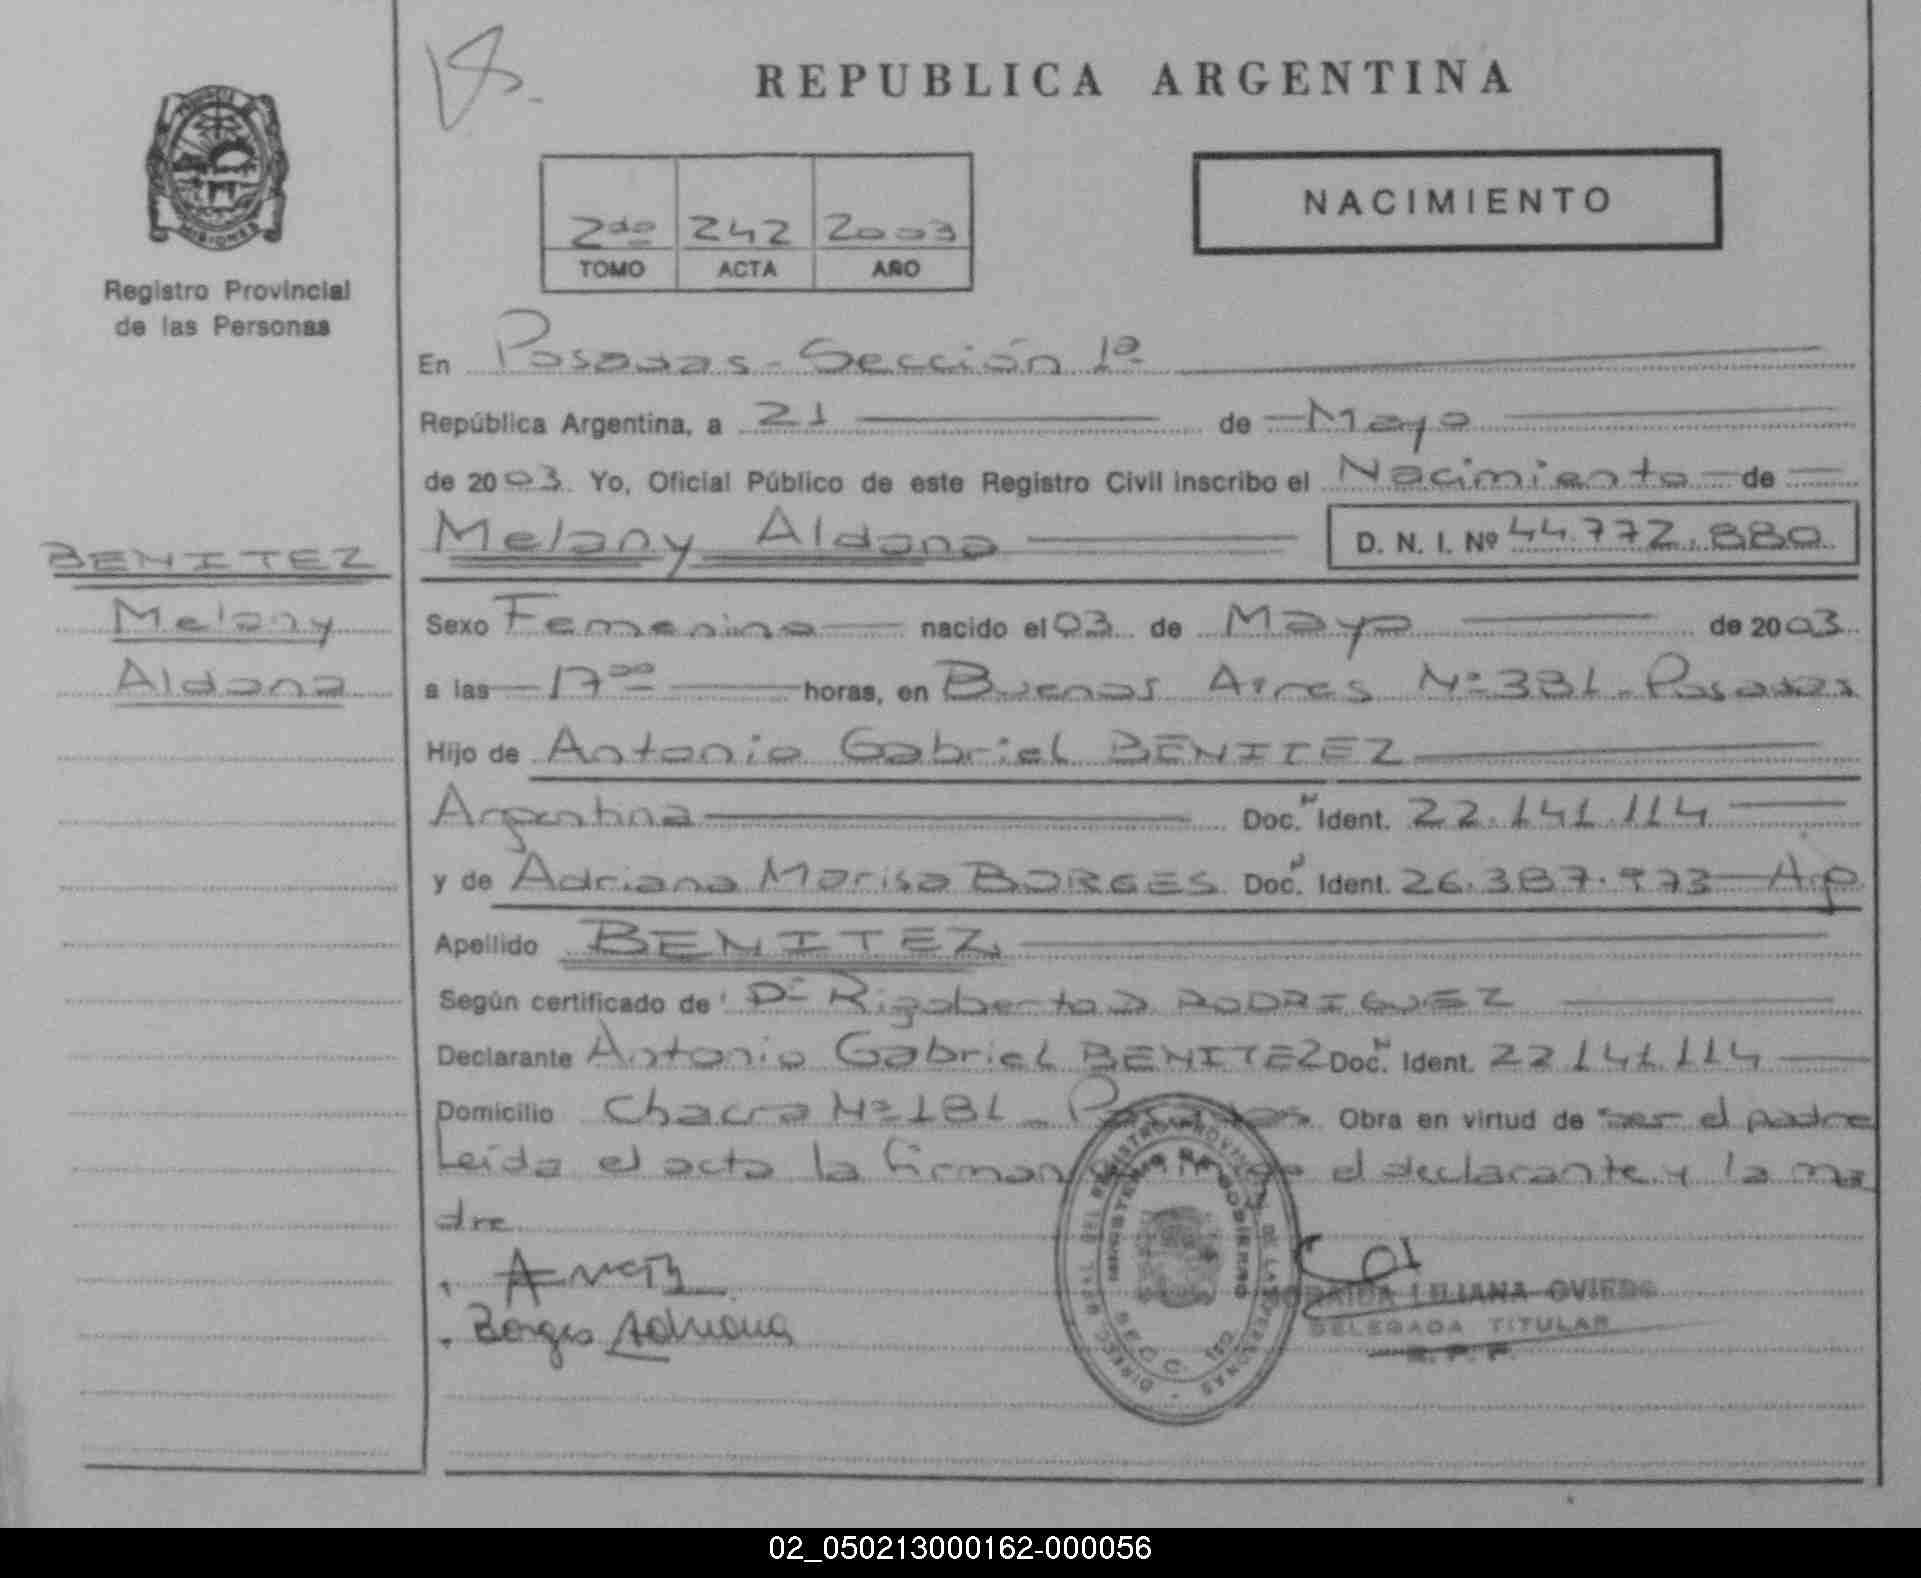 REPUBLICA ARGENTINA
NACIMIENTO
2do 242 2003
TOMO ACTA AÑO
MISIONES
Registro Provincial
de las Personas
En Posadas - Sección 1ª
República Argentina, a 21 de Mayo
de 2003. Yo, Oficial Público de este Registro Civil inscribo el Nacimiento de
Melany Aldana D. N. I. Nº 44.772.880
BENITEZ
Melany
Aldana
Sexo Femenino nacido el 03 de Mayo de 2003
a las 17 00 horas, en Buenos Aires Nº 331 - Posadas
Hijo de Antonio Gabriel BENITEZ
Argentina Doc. N Ident. 22.141.114
y de Adriana Marisa BORGES Doc. N Ident. 26.387.973 Arg
Apellido BENITEZ
Según certificado de Dr Rigoberto D RODRIGUEZ
Declarante Antonio Gabriel BENITEZ Doc. N Ident. 22.141.114
Domicilio Chacra Nº 181 - Posadas Obra en virtud de ser el padre
Leída el acta la firman el declarante y la ma
dre
Borges Adriana
MINISTERIO DE GOBIERNO
LILIANA OVIEDO
DELEGADA TITULAR
R. P. P.
02_050213000162-000056